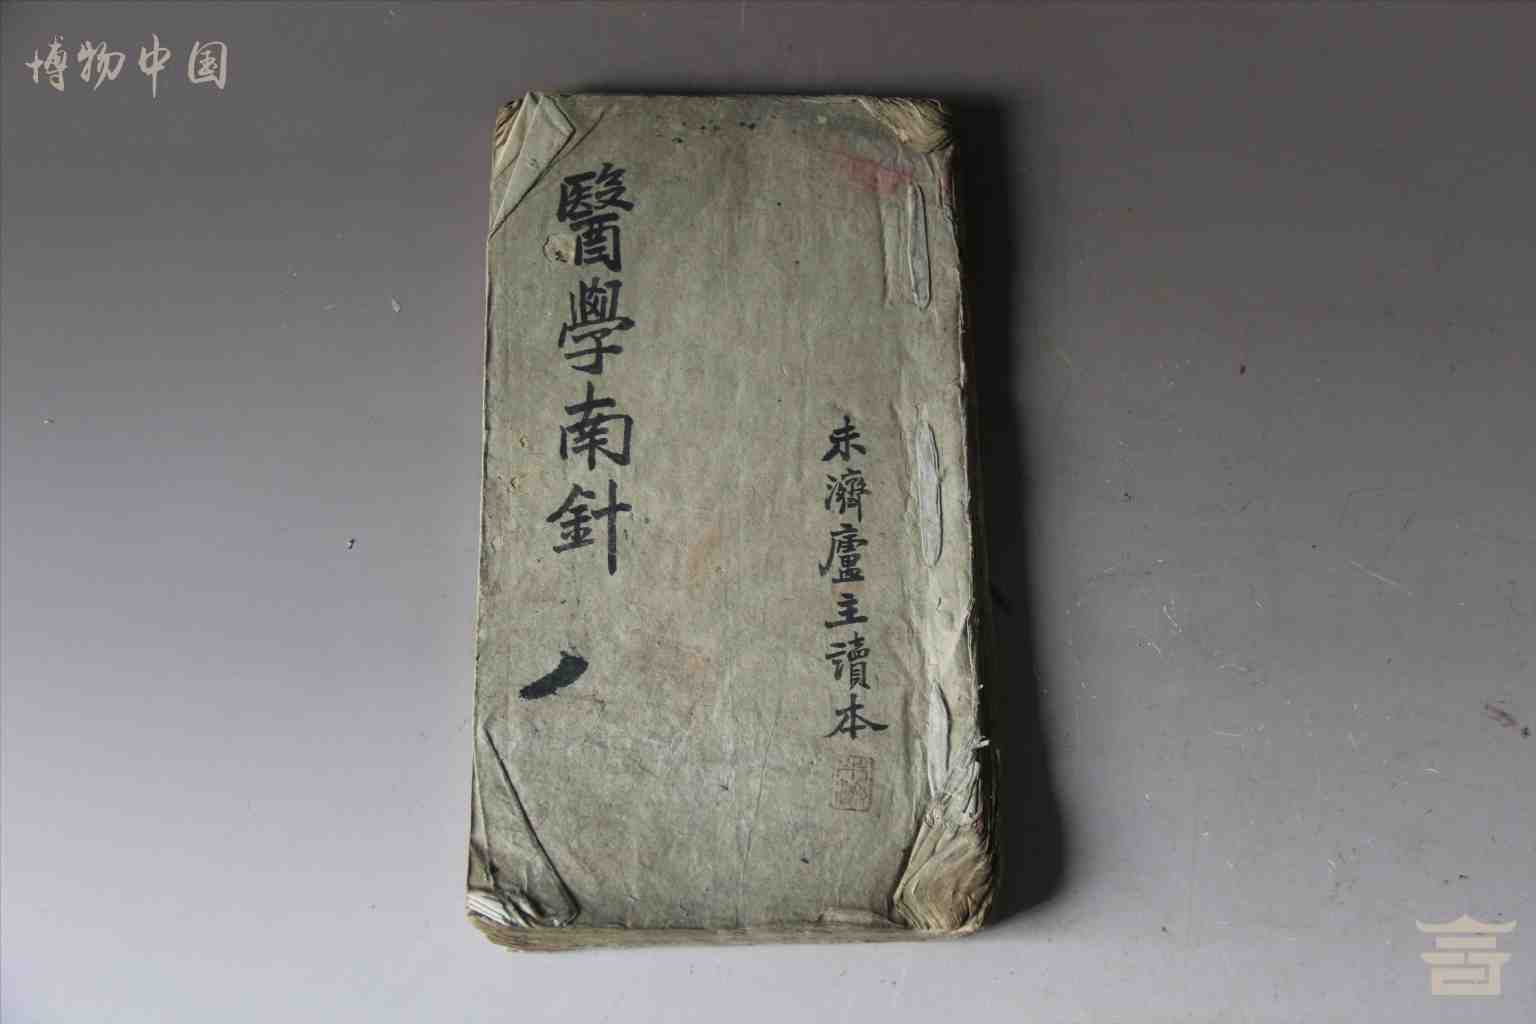 博物中国
未濟廬主讀本
醫學南針